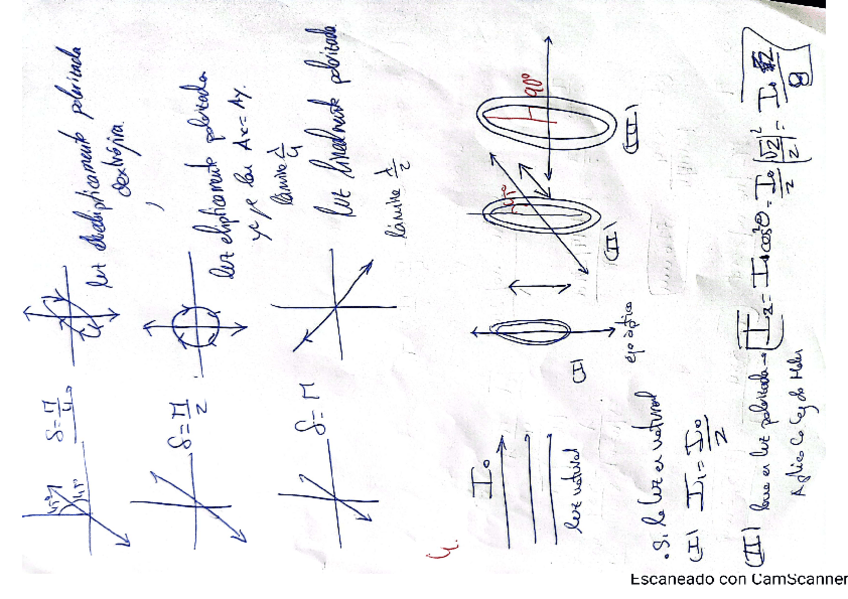 45°
δ = π/4
luz elipticamente polarizada
dextrógira.
δ = π/2
luz elipticamente polarizada
Ax = Ay.
lámina λ/4
δ = π
luz linealmente polarizada
lámina λ/2
4.
I₀
luz natural
(I)
eje óptico
(II)
90°
(III)
· Si la luz es natural
(I) I₁ = I₀/2
(II)
luz polarizada → I₂ = I₁cos²θ = I₀/2
Aplico la Ley de Malus
Escaneado con CamScanner